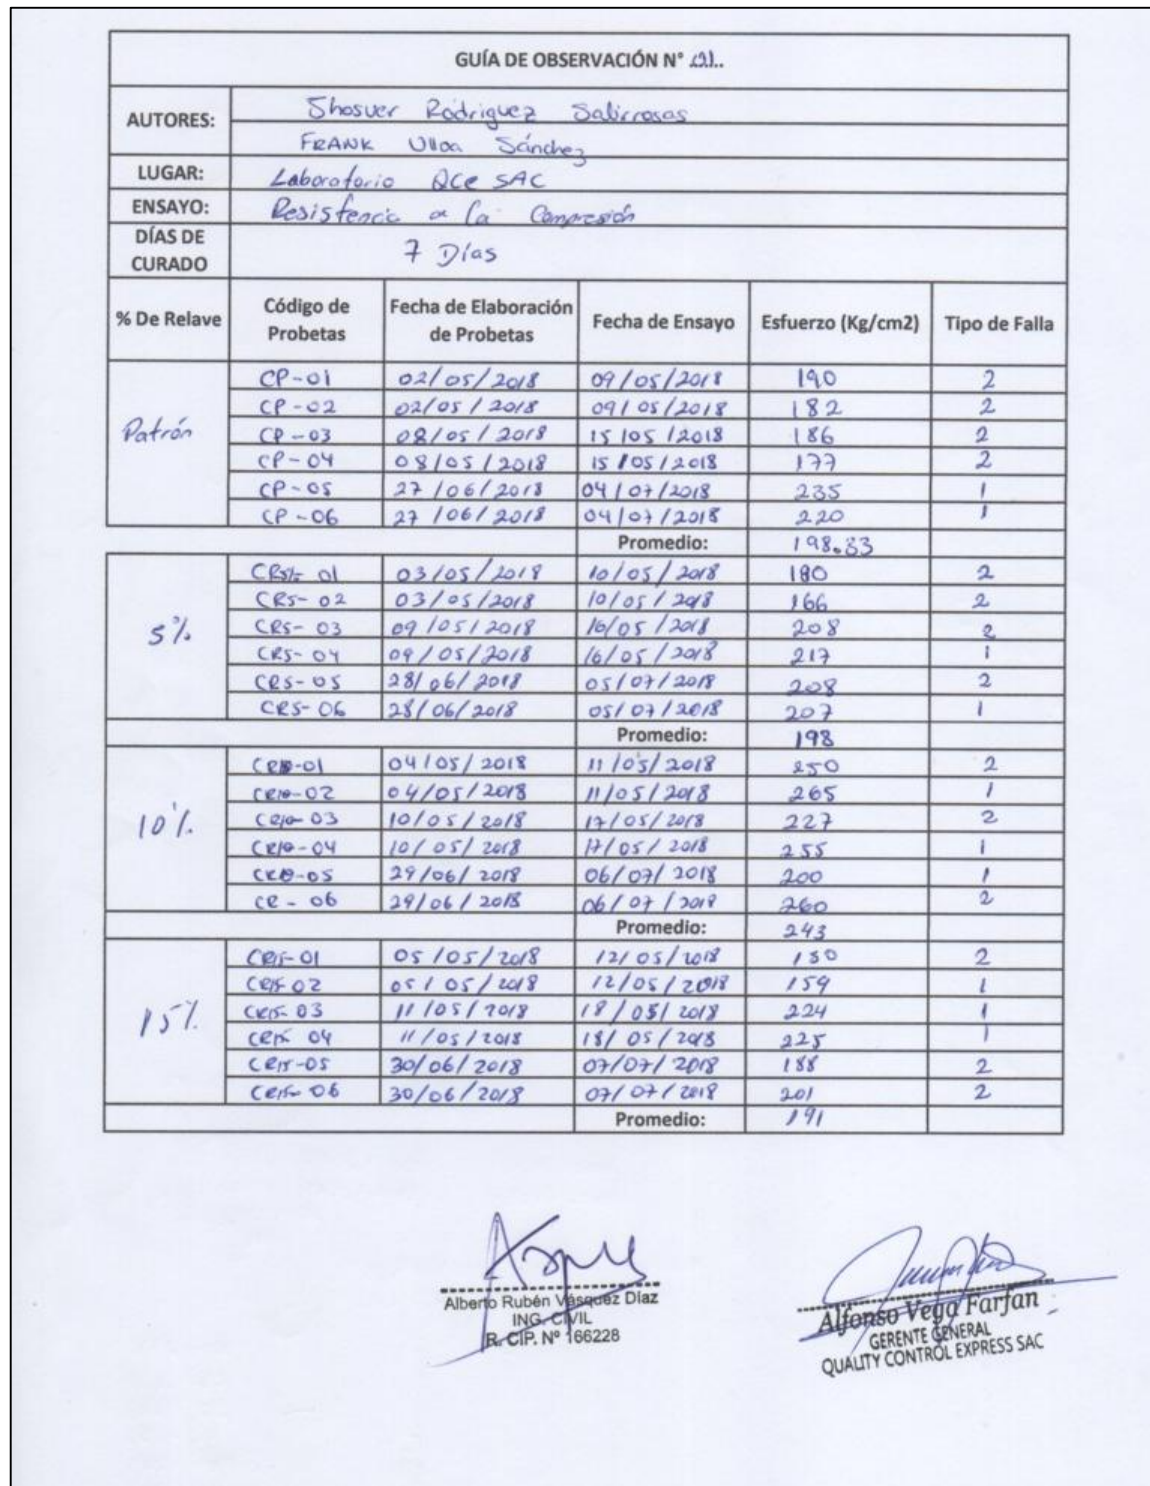 GUÍA DE OBSERVACIÓN N°
AUTORES: Shosver Rodriguez Salirrosas
FRANK Ulloa Sánchez
LUGAR: Laboratorio QCe SAC
ENSAYO: Resistencia a la Compresión
DÍAS DE CURADO 7 Días
% De Relave Código de Probetas Fecha de Elaboración de Probetas Fecha de Ensayo Esfuerzo (Kg/cm2) Tipo de Falla
Patrón
CP-01 02/05/2018 09/05/2018 190 2
CP-02 02/05/2018 09/05/2018 182 2
CP-03 08/05/2018 15/05/2018 186 2
CP-04 08/05/2018 15/05/2018 177 2
CP-05 27/06/2018 04/07/2018 235 1
CP-06 27/06/2018 04/07/2018 220 1
Promedio: 198.33
5%
CR5-01 03/05/2018 10/05/2018 180 2
CR5-02 03/05/2018 10/05/2018 166 2
CR5-03 09/05/2018 16/05/2018 208 2
CR5-04 09/05/2018 16/05/2018 217 1
CR5-05 28/06/2018 05/07/2018 208 2
CR5-06 28/06/2018 05/07/2018 207 1
Promedio: 198
10%
CR10-01 04/05/2018 11/05/2018 250 2
CR10-02 04/05/2018 11/05/2018 265 1
CR10-03 10/05/2018 17/05/2018 227 2
CR10-04 10/05/2018 17/05/2018 255 1
CR10-05 29/06/2018 06/07/2018 200 1
CR-06 29/06/2018 06/07/2018 260 2
Promedio: 243
15%
CR15-01 05/05/2018 12/05/2018 150 2
CR15-02 05/05/2018 12/05/2018 159 1
CR15-03 11/05/2018 18/05/2018 224 1
CR15-04 11/05/2018 18/05/2018 225 1
CR15-05 30/06/2018 07/07/2018 188 2
CR15-06 30/06/2018 07/07/2018 201 2
Promedio: 191
Alberto Rubén Vásquez Díaz
ING. CIVIL
R. CIP. Nº 166228
Alfonso Vega Farfan
GERENTE GENERAL
QUALITY CONTROL EXPRESS SAC